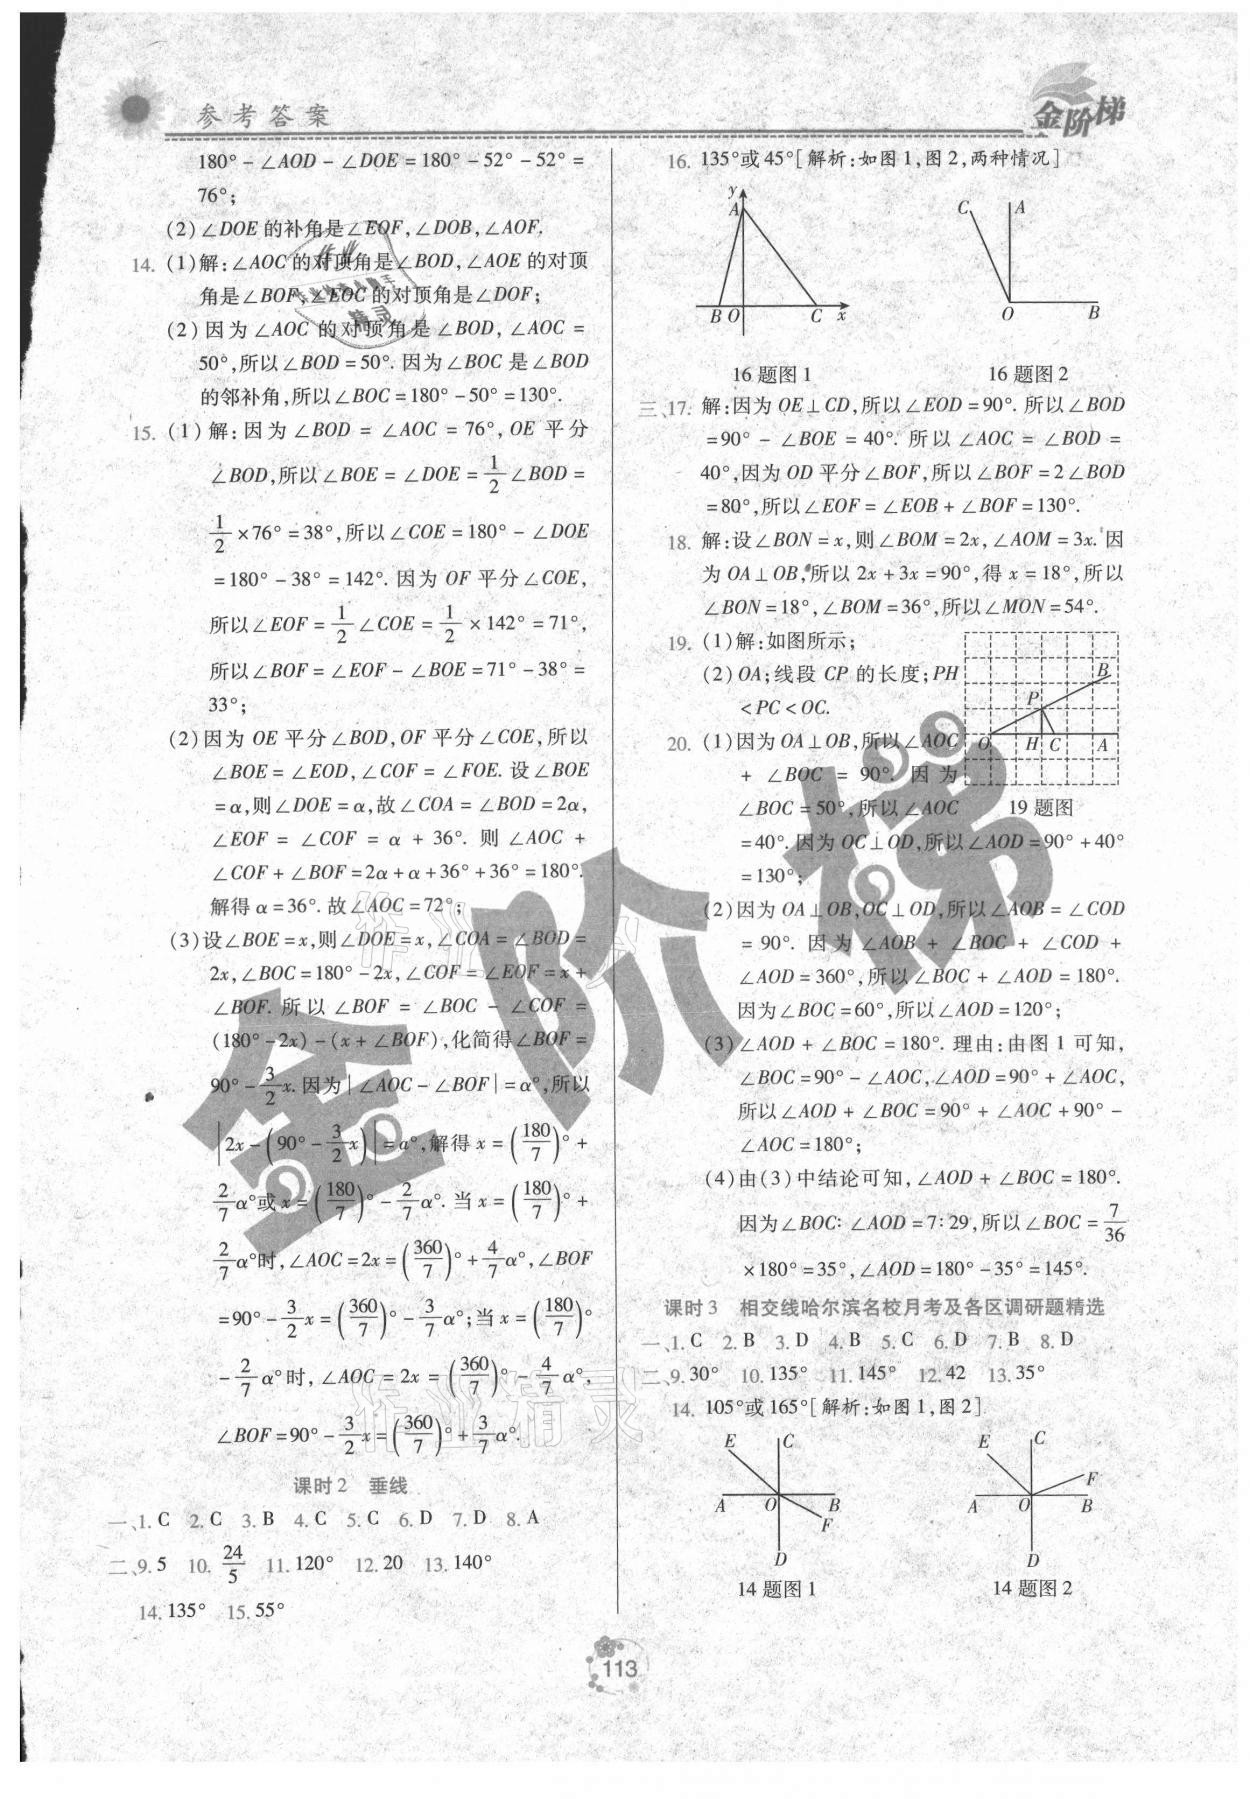 参考答案
金阶梯
180° - ∠AOD - ∠DOE = 180° - 52° - 52° =
76°;
(2) ∠DOE 的补角是∠EOF, ∠DOB, ∠AOF.
14. (1)解:∠AOC 的对顶角是∠BOD, ∠AOE 的对顶
角是∠BOF, ∠EOC 的对顶角是∠DOF;
(2) 因为 ∠AOC 的对顶角是 ∠BOD, ∠AOC =
50°,所以∠BOD = 50°. 因为∠BOC 是∠BOD
的邻补角,所以∠BOC = 180° - 50° = 130°.
15. (1) 解: 因为 ∠BOD = ∠AOC = 76°, OE 平分
∠BOD, 所以∠BOE = ∠DOE = 1/2 ∠BOD =
1/2 × 76° = 38°, 所以∠COE = 180° - ∠DOE
= 180° - 38° = 142°. 因为 OF 平分∠COE,
所以∠EOF = 1/2 ∠COE = 1/2 × 142° = 71°,
所以∠BOF = ∠EOF - ∠BOE = 71° - 38° =
33°;
(2) 因为 OE 平分∠BOD, OF 平分∠COE, 所以
∠BOE = ∠EOD, ∠COF = ∠FOE. 设∠BOE
= α, 则∠DOE = α, 故∠COA = ∠BOD = 2α,
∠EOF = ∠COF = α + 36°. 则 ∠AOC +
∠COF + ∠BOF = 2α + α + 36° + 36° = 180°.
解得 α = 36°. 故∠AOC = 72°;
(3) 设∠BOE = x, 则∠DOE = x, ∠COA = ∠BOD =
2x, ∠BOC = 180° - 2x, ∠COF = ∠EOF = x +
∠BOF. 所以 ∠BOF = ∠BOC - ∠COF =
(180° - 2x) - (x + ∠BOF), 化简得∠BOF =
90° - 3/2 x. 因为|∠AOC - ∠BOF| = α°, 所以
|2x - (90° - 3/2 x)| = a°, 解得 x = (180/7)° +
2/7 α°或 x = (180/7)° - 2/7 α°. 当 x = (180/7)° +
2/7 α°时, ∠AOC = 2x = (360/7)° + 4/7 α°, ∠BOF
= 90° - 3/2 x = (360/7)° - 3/7 α°; 当 x = (180/7)°
- 2/7 α°时, ∠AOC = 2x = (360/7)° - 4/7 α°,
∠BOF = 90° - 3/2 x = (360/7)° + 3/7 α°.
课时2 垂线
一、1. C 2. C 3. B 4. C 5. C 6. D 7. D 8. A
二、9. 5 10. 24/5 11. 120° 12. 20 13. 140°
14. 135° 15. 55°
16. 135°或45°[解析:如图1,图2,两种情况]
y A B O C x
C A O B
16题图1 16题图2
三、17. 解:因为 OE⊥CD, 所以∠EOD = 90°. 所以∠BOD
= 90° - ∠BOE = 40°. 所以 ∠AOC = ∠BOD =
40°, 因为 OD 平分∠BOF, 所以∠BOF = 2∠BOD
= 80°, 所以∠EOF = ∠EOB + ∠BOF = 130°.
18. 解:设∠BON = x, 则∠BOM = 2x, ∠AOM = 3x. 因
为 OA⊥OB, 所以 2x + 3x = 90°, 得 x = 18°, 所以
∠BON = 18°, ∠BOM = 36°, 所以∠MON = 54°.
19. (1)解:如图所示;
(2) OA; 线段 CP 的长度; PH
< PC < OC.
B P O H C A
19题图
20. (1)因为 OA⊥OB, 所以∠AOC
+ ∠BOC = 90°. 因为
∠BOC = 50°, 所以∠AOC
= 40°. 因为 OC⊥OD, 所以∠AOD = 90° + 40°
= 130°;
(2)因为 OA⊥OB, OC⊥OD, 所以∠AOB = ∠COD
= 90°. 因为 ∠AOB + ∠BOC + ∠COD +
∠AOD = 360°, 所以∠BOC + ∠AOD = 180°.
因为∠BOC = 60°, 所以∠AOD = 120°;
(3) ∠AOD + ∠BOC = 180°. 理由:由图1可知,
∠BOC = 90° - ∠AOC, ∠AOD = 90° + ∠AOC,
所以∠AOD + ∠BOC = 90° + ∠AOC + 90° -
∠AOC = 180°;
(4)由(3)中结论可知, ∠AOD + ∠BOC = 180°.
因为∠BOC: ∠AOD = 7: 29, 所以∠BOC = 7/36
× 180° = 35°, ∠AOD = 180° - 35° = 145°.
课时3 相交线哈尔滨名校月考及各区调研题精选
一、1. C 2. B 3. D 4. B 5. C 6. D 7. B 8. D
二、9. 30° 10. 135° 11. 145° 12. 42 13. 35°
14. 105°或165°[解析:如图1,图2]
E C A O B F D
E C F A O B D
14题图1 14题图2
113
金阶梯
作业精灵